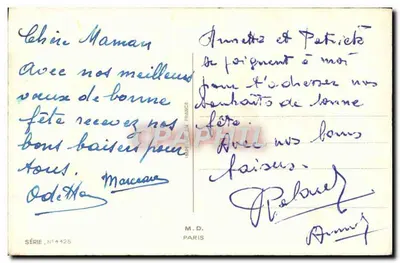 Chère Maman
Avec nos meilleurs
vœux de bonne
fête recevez nos
bons baisers pour
tous.
Odette
Annette et Patrick
se joignent à moi
pour t'adresser nos
souhaits de bonne
fête.
Avec nos bons
baisers.
M. D.
PARIS
SÉRIE, N° 4426